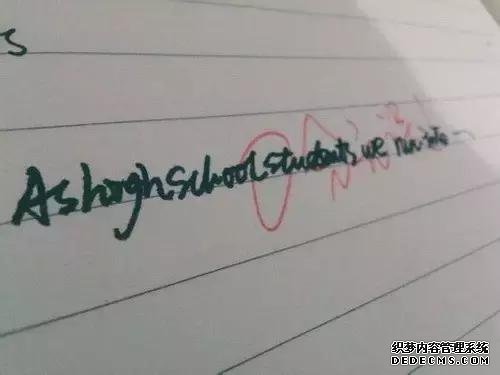 s
As high school students, we run into
织梦内容管理系统
DEDECMS.COM